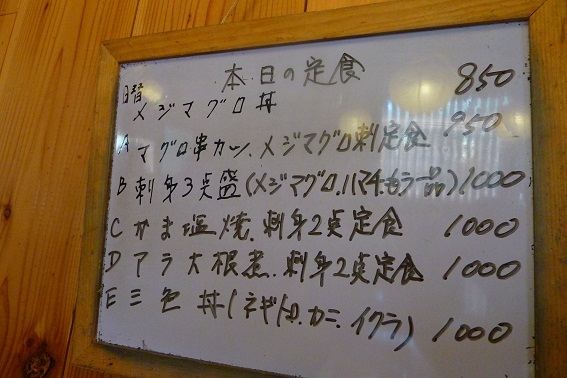 本日の定食
日替 メジマグロ丼 850
A マグロ串カツ.メジマグロ刺定食 950
B 刺身3点盛(メジマグロ.ハマチ.もう一品)1000
C かま塩焼.刺身2点定食 1000
D アラ大根煮.刺身2点定食 1000
E 三色丼(ネギトロ.カニ.イクラ)1000